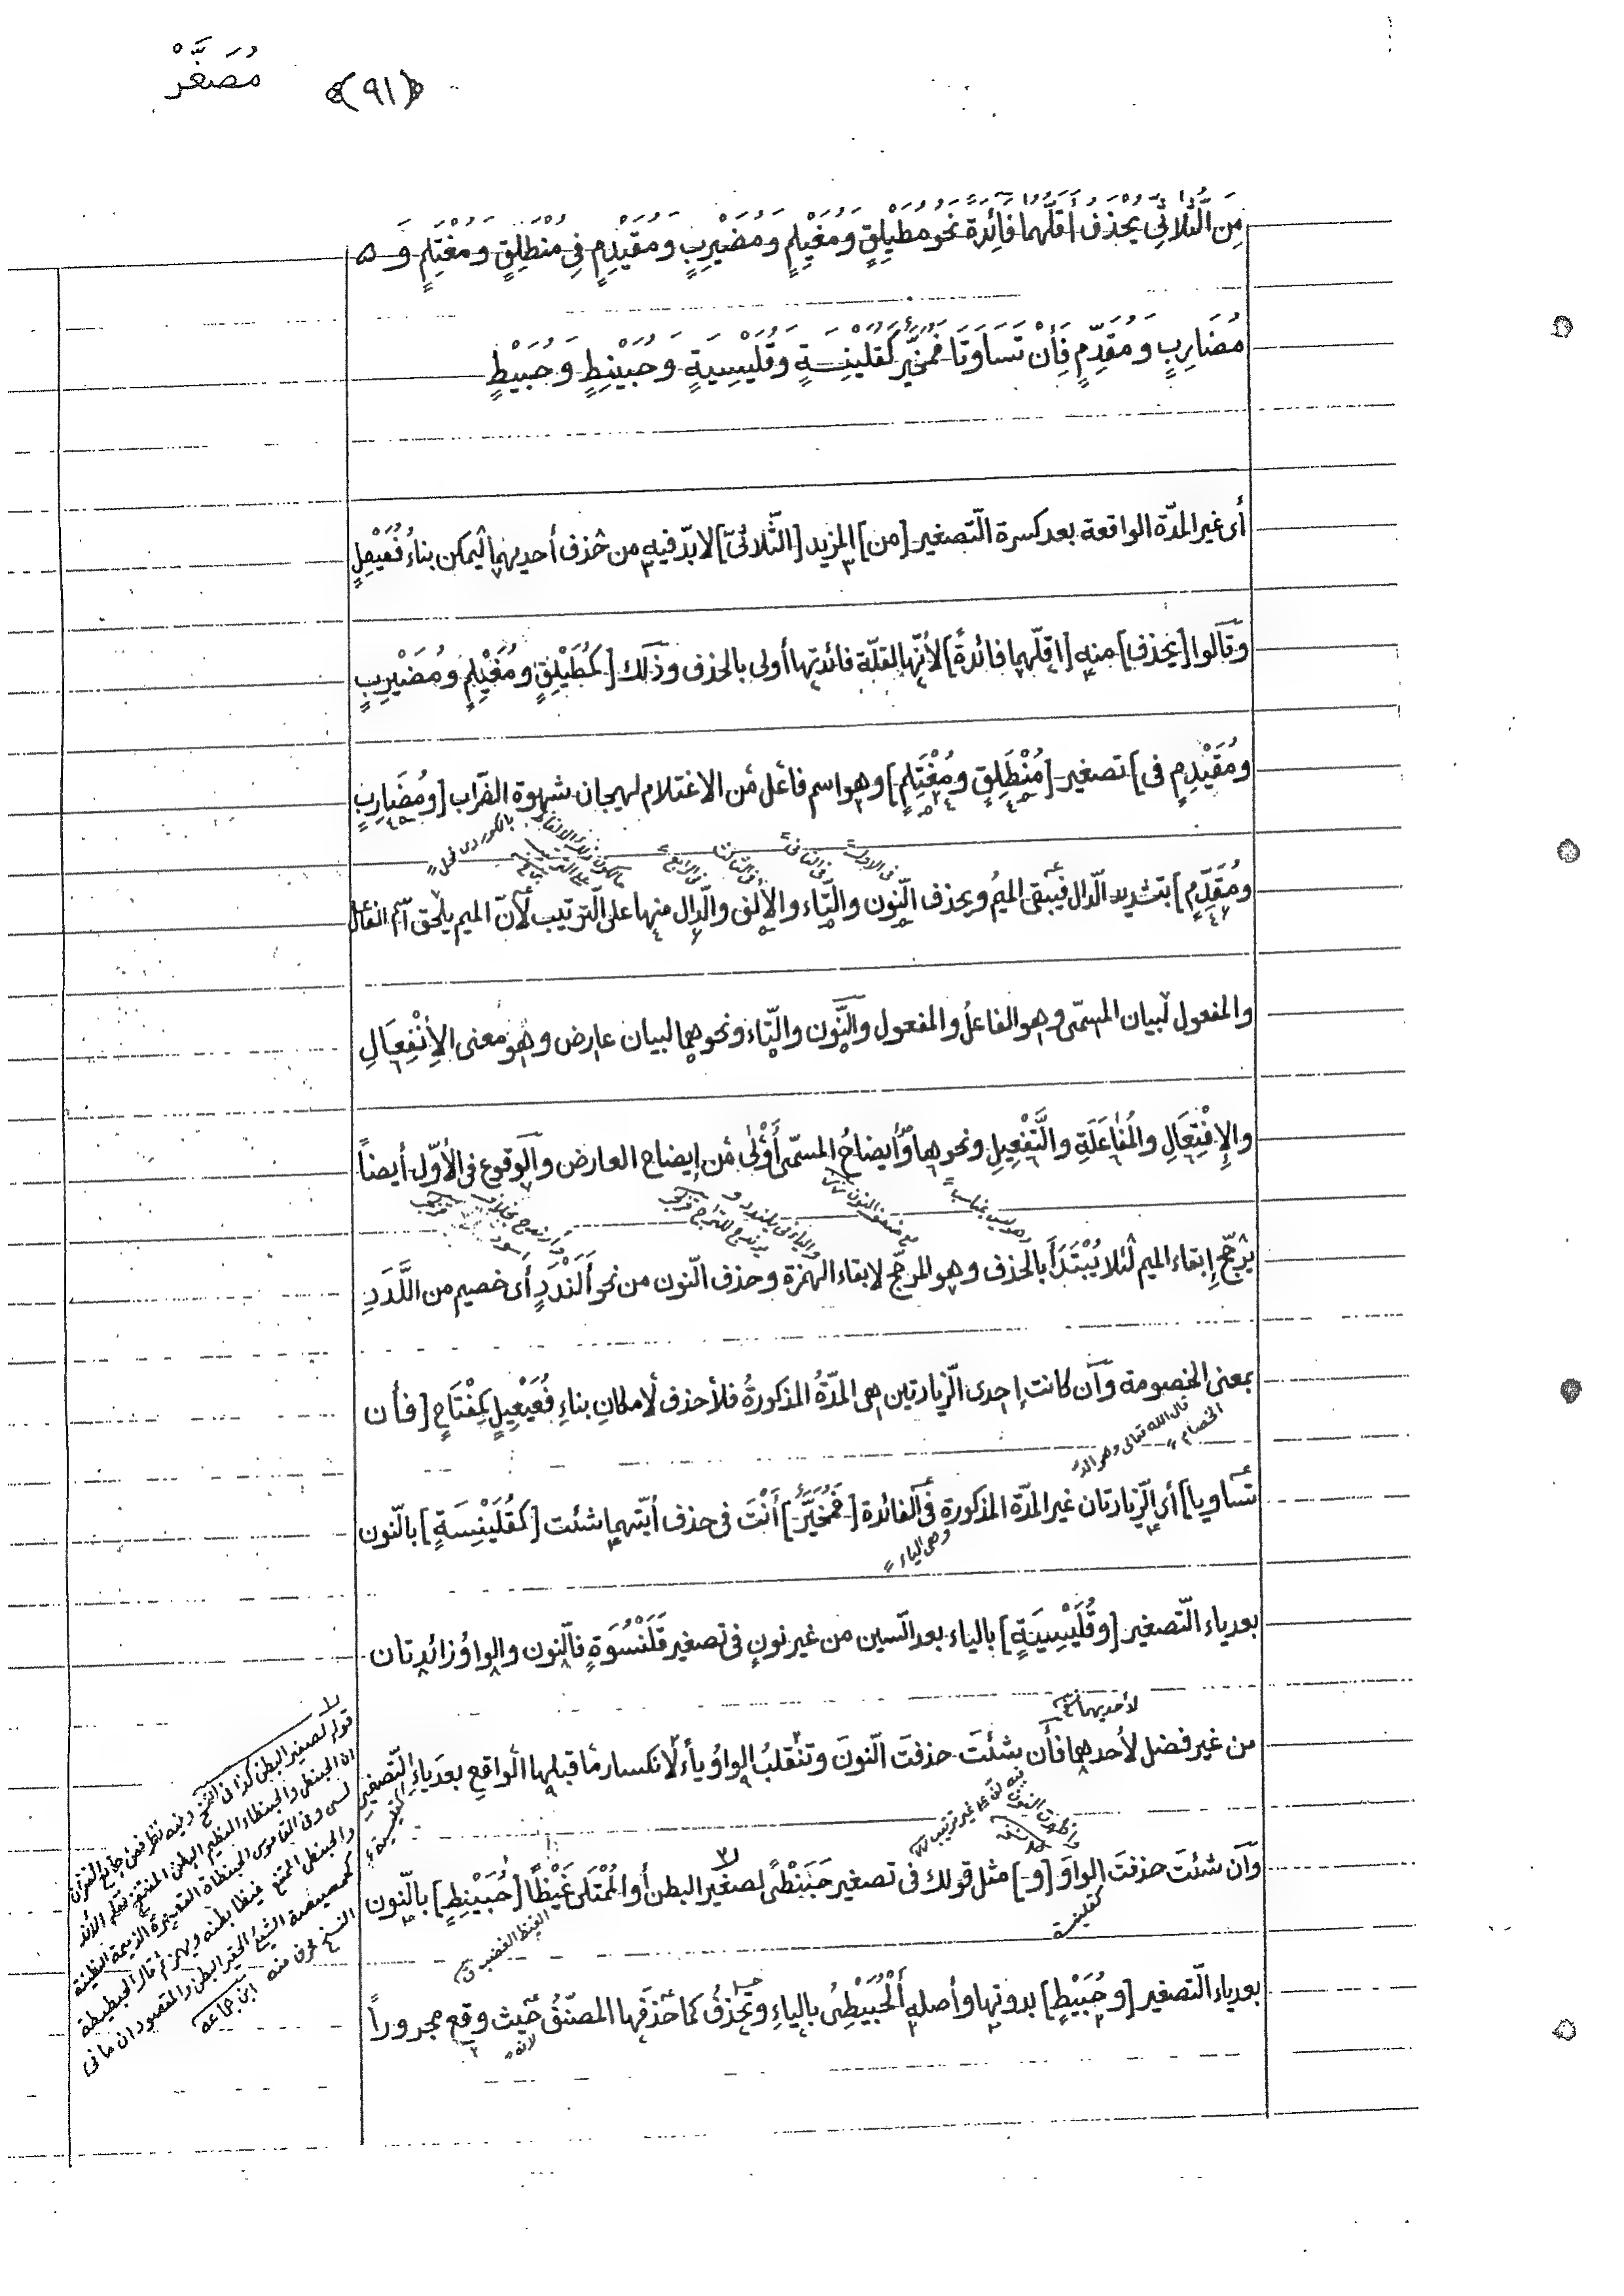 مُصَغَّرْ
﴿٩١﴾
مِنَ الثُّلَاثِيِّ يُحْذَفُ أَقَلُّهُمَا فَائِدَةً نَحْوُ مُطَيْلِقٍ وَمُغَيْلِمٍ وَمُضَيْرِبٍ وَمُقَيْدِمٍ فِي مُنْطَلِقٍ وَمُغْتَلِمٍ وَ
مُضَارِبٍ وَمُقَدِّمٍ فَأَنْ تَسَاوَتَا فَمُخَيَّرٌ كَقُلَيْنِسَةٍ وَقُلَيْسِيَةٍ وَحُبَيْنِطٍ وَحُبَيْطٍ
أى غير المدّة الواقعة بعد كسرة التّصغير [من] المزيد [الثّلاثىّ] لابدّ فيه من حذف أحديهما ليمكن بناءُ فُعَيْعِلٍ
وقالوا [يحذف] منه [اقلّهما فائدةً] لأنّها لقلّة فائدتها أولى بالحذف وذلك [كمُطَيْلِقٍ ومُغَيْلِمٍ ومُضَيْرِبٍ
ومُقَيْدِمٍ فى] تصغير [مُنْطَلِقٍ ومُغْتَلِمٍ] وهو اسم فاعل من الاغتلام لهيجان شهوة الضّراب [ومُضَارِبٍ
فى الاول فى الثانى فى الثالث فى الرابع
ومُقَدِّمٍ] بتشديد الدّال فيبقى الميمُ ويحذف النّون والتّاء والألف والدّال منها على التّرتيب لأنّ الميم يلحق اسم الفاعل
والمفعول لبيان المسمّى وهو الفاعلُ والمفعول والنّون والتّاء ونحوهما لبيان عارض وهو معنى الأِنْفِعَالِ
والإِفْتِعَالِ والمُفَاعَلَةِ والتَّفْعِيلِ ونحوها وأيضاحُ المسمّى أَوْلٰى من إيضاح العارض والوقوع فى الأوّل أيضاً
يرجّح إبقاء الميم لئلا يُبْتَدَأَ بالحذف وهو المرجّح لابقاء الهمزة وحذف النّون من نحو أَلَنْدَدٍ أى خصيم من اللَّدَدِ
بمعنى الخصومة وآن كانت إحدى الزّيادتين هى المدّةُ المذكورةُ فلأ حذف لأمكانِ بناءِ فُعَيْعِيلٍ كمِفْتَاحٍ [فأن
قال الله تعالى وهو الدّ
الخصام
تساويا] أى الزّيادتان غير المدّة المذكورة فى الفائدة [فَمُخَيَّرٌ] أَنْتَ فى حذف أيّتهما شئت [كقُلَيْنِسَةٍ] بالنّون
وهى الياء
بعد ياء التّصغير [وقُلَيْسِيَةٍ] بالياء بعد السّين من غير نونٍ فى تصغير قَلَنْسُوَةٍ فالنّون والواوُ زائدتان
لأحديهما
من غير فضل لأحدهما فأن شئتَ حذفتَ النّونَ وتنقلبُ الواوُ ياءً لانكسار ما قبلها الواقعِ بعد ياءِ التّصغير
كقليسية
وآن شئتَ حذفتَ الواوَ [و] مثل قولك فى تصغير حَبَنْطًى لصغير البطن أو الممْتلى غَيْظاً [حُبَيْنِطٍ] بالنّون
كقلينسة
الغيظ الغضب ق
بعد ياء التّصغير [وحُبَيْطٍ] بدونها وأصله أَلْحُبَيْطِىُ بالياءِ وتُحْذفُ كما حذفها المصنّفُ حيث وقع مجروراً
لأنه
قوله لصغير البطن كذا فى النسخ وفيه نظر ففى جامع القزّاز
ان الحبنطى والحبنطاء العظيم البطن المنتفخ
وفى القاموس الحبنطاة القصيرة الدميمة البطينة
والحبنطى الممتلئ غيظا او بطنه ويهمز ثم قال الحبطيطة
كحمصيصة الشئ الحقير البطن والمقصود ان ما فى
النسخ محرف منه ابن جماعه